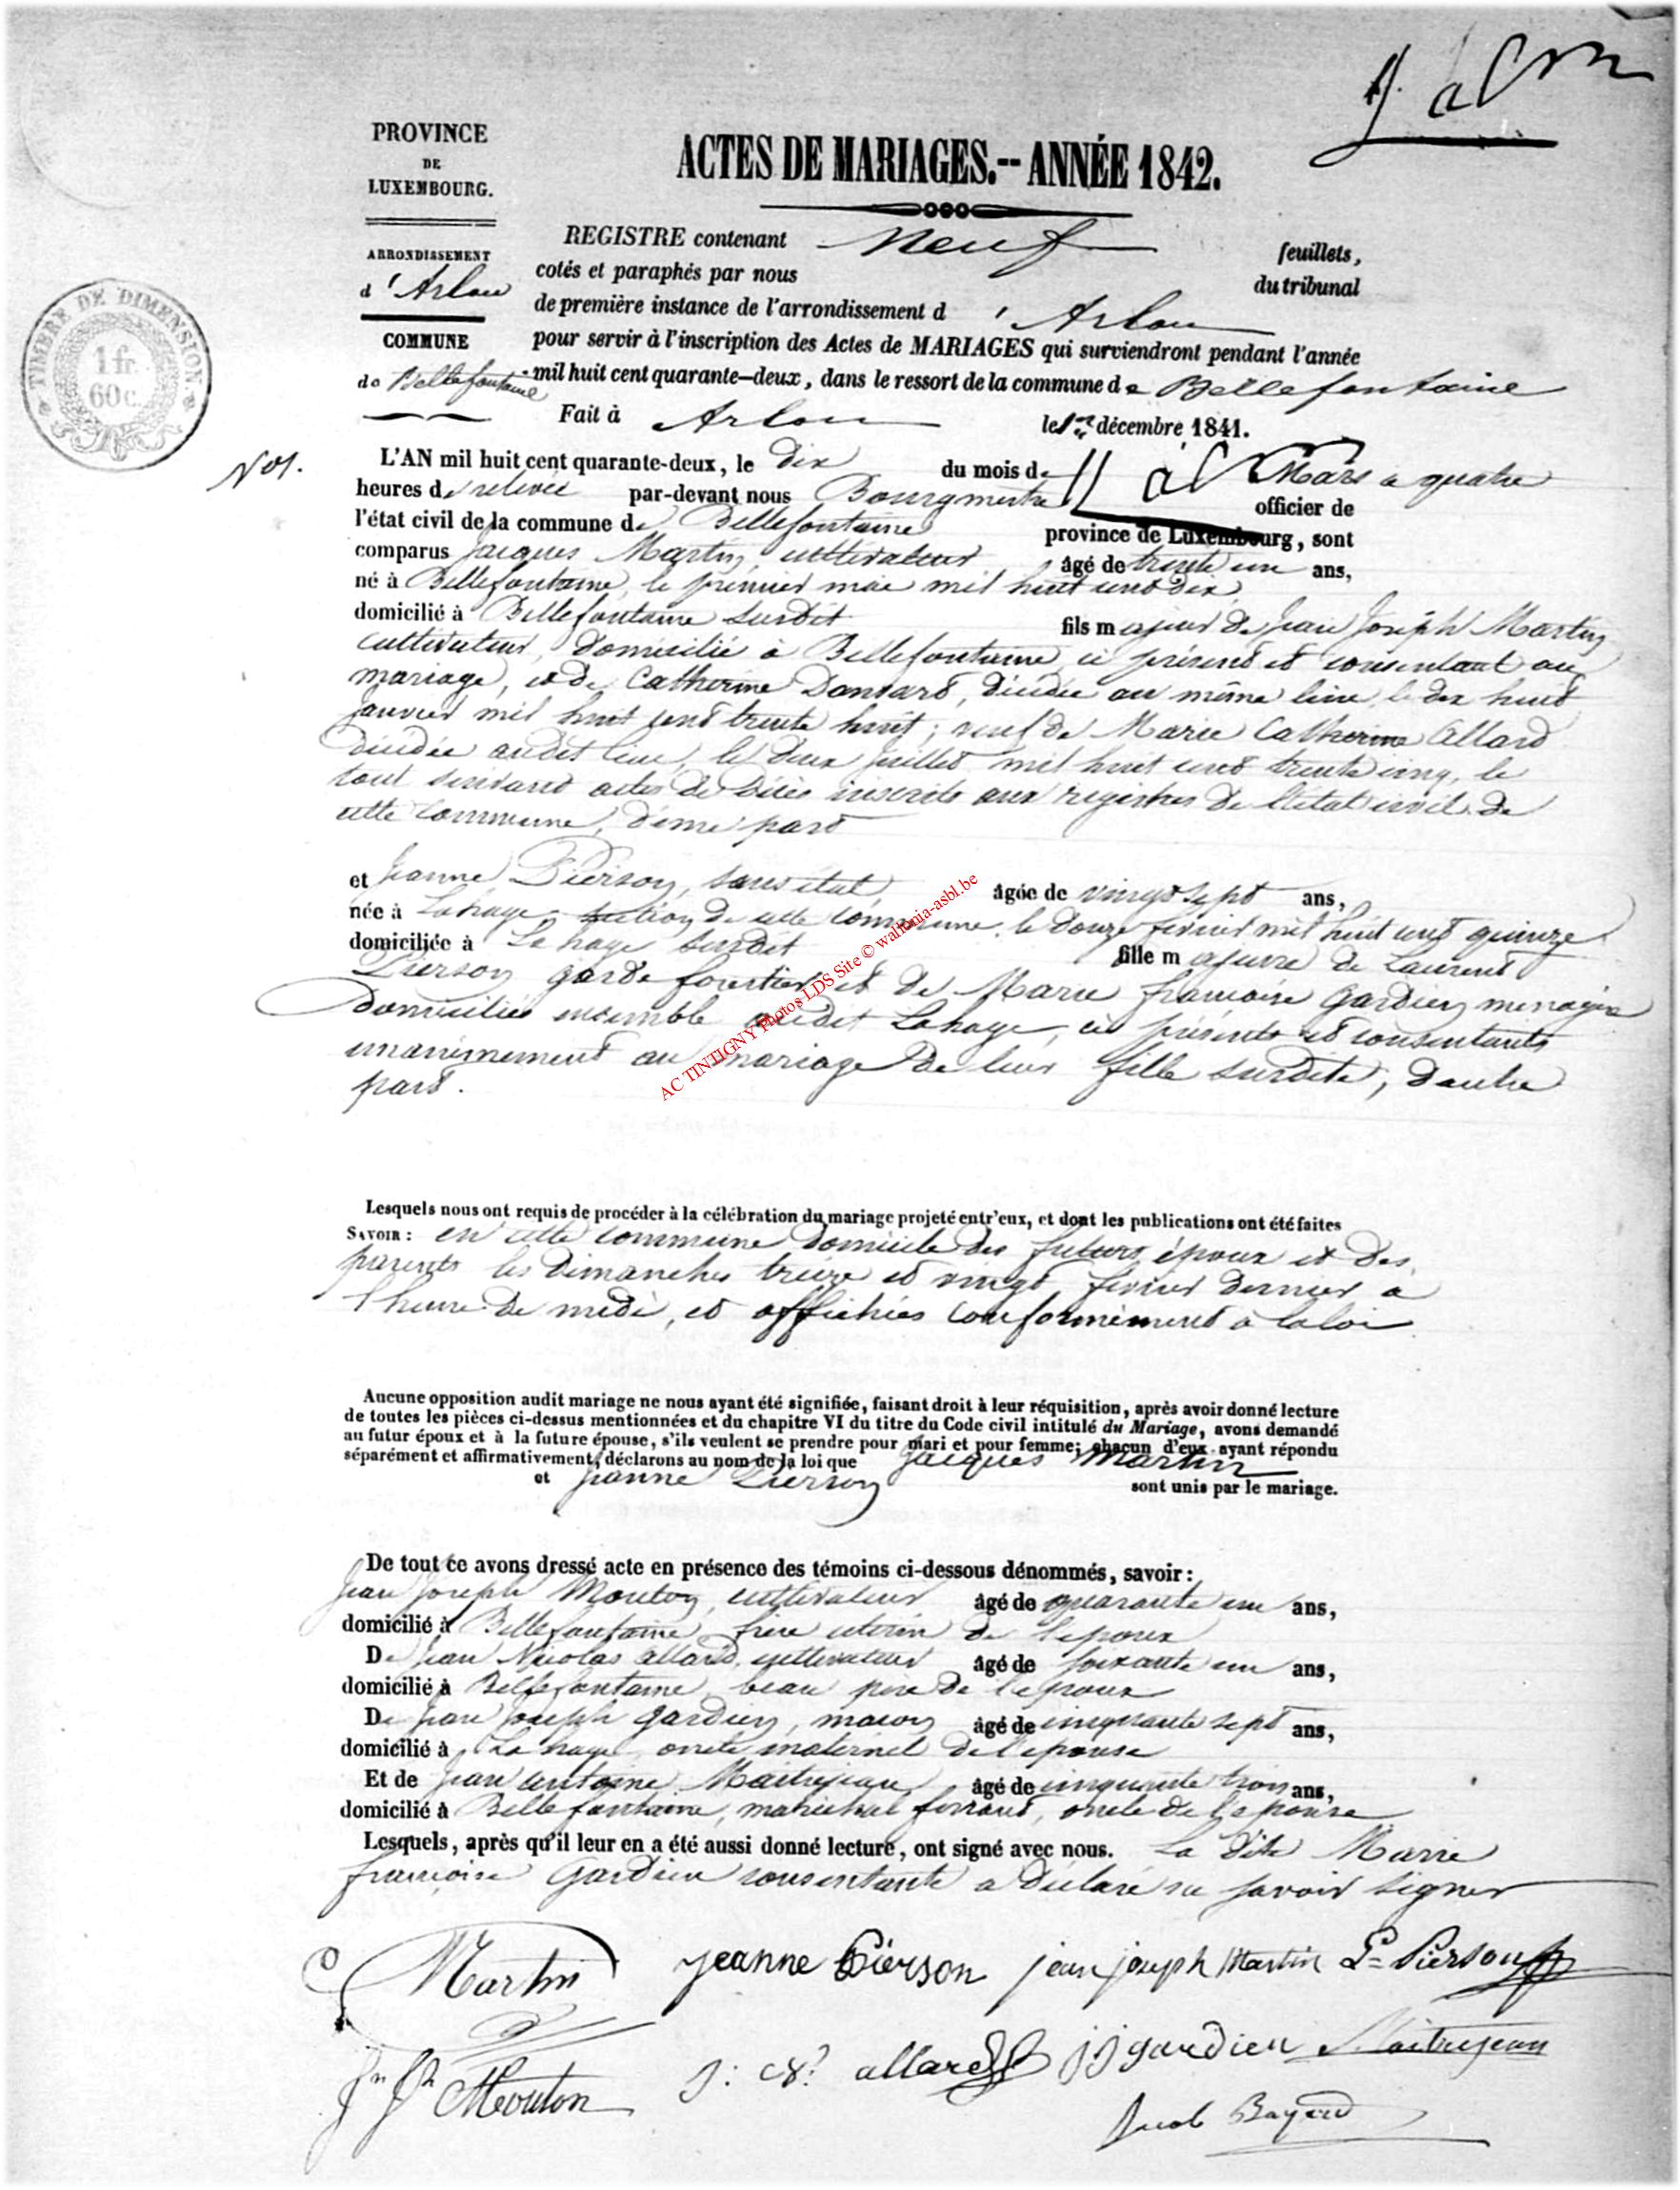 PROVINCE
DE
LUXEMBOURG.
ARRONDISSEMENT
d'Arlon
COMMUNE
de Bellefontaine
TIMBRE DE DIMENSION
1 fr.
60 c.
ACTES DE MARIAGES.-- ANNÉE 1842.
REGISTRE contenant Neuf feuillets,
cotés et paraphés par nous du tribunal
de première instance de l'arrondissement d'Arlon
pour servir à l'inscription des Actes de MARIAGES qui surviendront pendant l'année
mil huit cent quarante-deux, dans le ressort de la commune de Bellefontaine
Fait à Arlon le 1er décembre 1841.
No1.
L'AN mil huit cent quarante-deux, le dix du mois de Mars à quatre
heures de relevée par-devant nous Bourgmestre officier de
l'état civil de la commune de Bellefontaine province de Luxembourg, sont
comparus Jacques Martin, cultivateur âgé de trente un ans,
né à Bellefontaine, le premier mai mil huit cent dix,
domicilié à Bellefontaine susdit fils majeur de Jean Joseph Martin
cultivateur, domicilié à Bellefontaine, ci présent et consentant au
mariage, et de Catherine Dansard, décédée au même lieu, le dix huit
janvier mil huit cent trente huit; veuf de Marie Catherine Allard
décédée audit lieu, le deux juillet mil huit cent trente cinq, le
tout suivant actes de décès inscrits aux registres de l'état civil de
cette commune, d'une part
et Jeanne Pierson, sans état, âgée de vingt sept ans,
née à Lahage, section de cette commune, le douze fevrier mil huit cent quinze
domiciliée à Lahage susdit fille majeure de Laurent
Pierson garde forestier et de Marie françoise Gardien menagère
domiciliés ensemble audit Lahage, ci présents et consentants
unanimement au mariage de leur fille susdite, d'autre
part.
AC TINTIGNY Photos LDS Site © wallonia-asbl.be
Lesquels nous ont requis de procéder à la célébration du mariage projeté entr'eux, et dont les publications ont été faites
SAVOIR: en cette commune domicile des futurs époux et des
parents les dimanches treize et vingt fevrier dernier à
l'heure de midi, et affichées conformément à la loi
Aucune opposition audit mariage ne nous ayant été signifiée, faisant droit à leur réquisition, après avoir donné lecture
de toutes les pièces ci-dessus mentionnées et du chapitre VI du titre du Code civil intitulé du Mariage, avons demandé
au futur époux et à la future épouse, s'ils veulent se prendre pour mari et pour femme; chacun d'eux ayant répondu
séparément et affirmativement, déclarons au nom de la loi que Jacques Martin
et Jeanne Pierson sont unis par le mariage.
De tout ce avons dressé acte en présence des témoins ci-dessous dénommés, savoir:
Jean Joseph Mouton, cultivateur âgé de quarante un ans,
domicilié à Bellefontaine, frère utérin de l'epoux
De Jean Nicolas Allard, cultivateur âgé de soixante un ans,
domicilié à Bellefontaine, beau père de l'epoux
De Jean Joseph Gardien, maçon âgé de cinquante sept ans,
domicilié à Lahage, oncle maternel de l'epouse
Et de Jean Antoine Maitrejean âgé de cinquante trois ans,
domicilié à Bellefontaine, maréchal ferrant, oncle de l'epouse
Lesquels, après qu'il leur en a été aussi donné lecture, ont signé avec nous. La dite Marie
françoise Gardien consentante a déclaré ne savoir signer
Martin Jeanne Pierson jean joseph Martin L= Pierson
Jn Jh Mouton allard jj gardien Maitrejean
Bayard